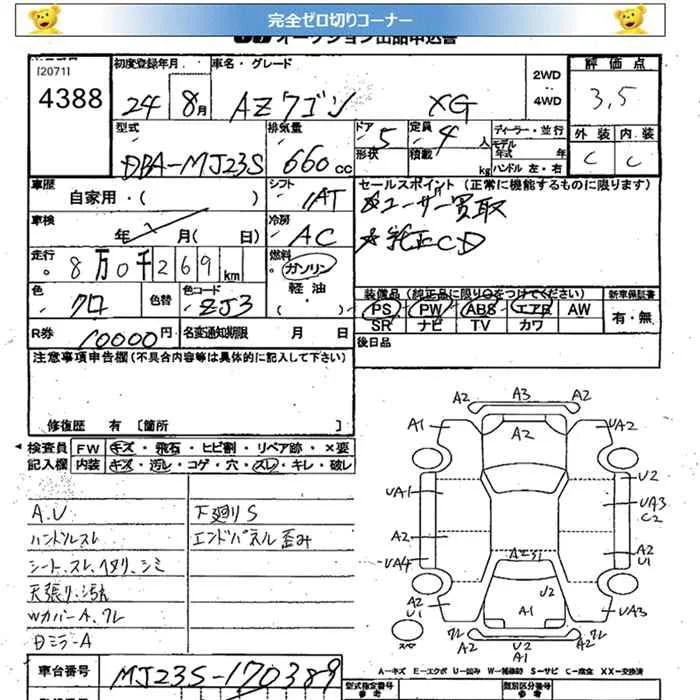 完全ゼロ切りコーナー
オークション出品申込書
[2071]
4388
初度登録年月
24 年 8 月
車名・グレード
AZワゴン XG
2WD
4WD
評価点
3.5
外装 内装
C C
型式
DBA-MJ23S
排気量
660 cc
ドア
5
定員
4 人
形状
積載
kg
ディーラー・並行
モデル年式 年
ハンドル 左・右
車歴
自家用・( )
シフト
IAT
セールスポイント (正常に機能するものに限ります)
☆ユーザー買取
☆純正CD
車検
年 月( 日)
冷房
AC
走行
8万0千269km
燃料
ガソリン
軽油
・( )
色
クロ
色替
色コード
ZJ3
装備品 (純正品に限り○をつけてください)
PS PW ABS エアB AW
SR ナビ TV カワ
新車保証書
有・無
R券
10000円
名変通知期限 月 日
後日品
注意事項申告欄(不具合内容等は具体的に記入して下さい)
修復歴 有 [箇所 ]
検査員
記入欄
FW キズ・飛石・ヒビ割・リペア跡・×要
内装 キズ・汚レ・コゲ・穴・スレ・キレ・破レ
A.U
ハンドルスレ
シート、スレ、ヘタリ、シミ
天張り、汚れ
Wカバー A、ワレ
Dミラー A
下廻りS
エンドパネル歪み
A2 A3 A2
A1 A2 UA2
UA1 U2
UA3
C2
A2 A2
U1
UA4
A2S1
U2
A1
A2
U1 UA3
ワレ A2 U2 A2 ワレ
A1
A-キズ E-エクボ U-凹み W-補修跡 S-サビ C-腐食 XX-交換済
車台番号
MJ23S-170389
型式指定番号
参考
類別区分番号
参考